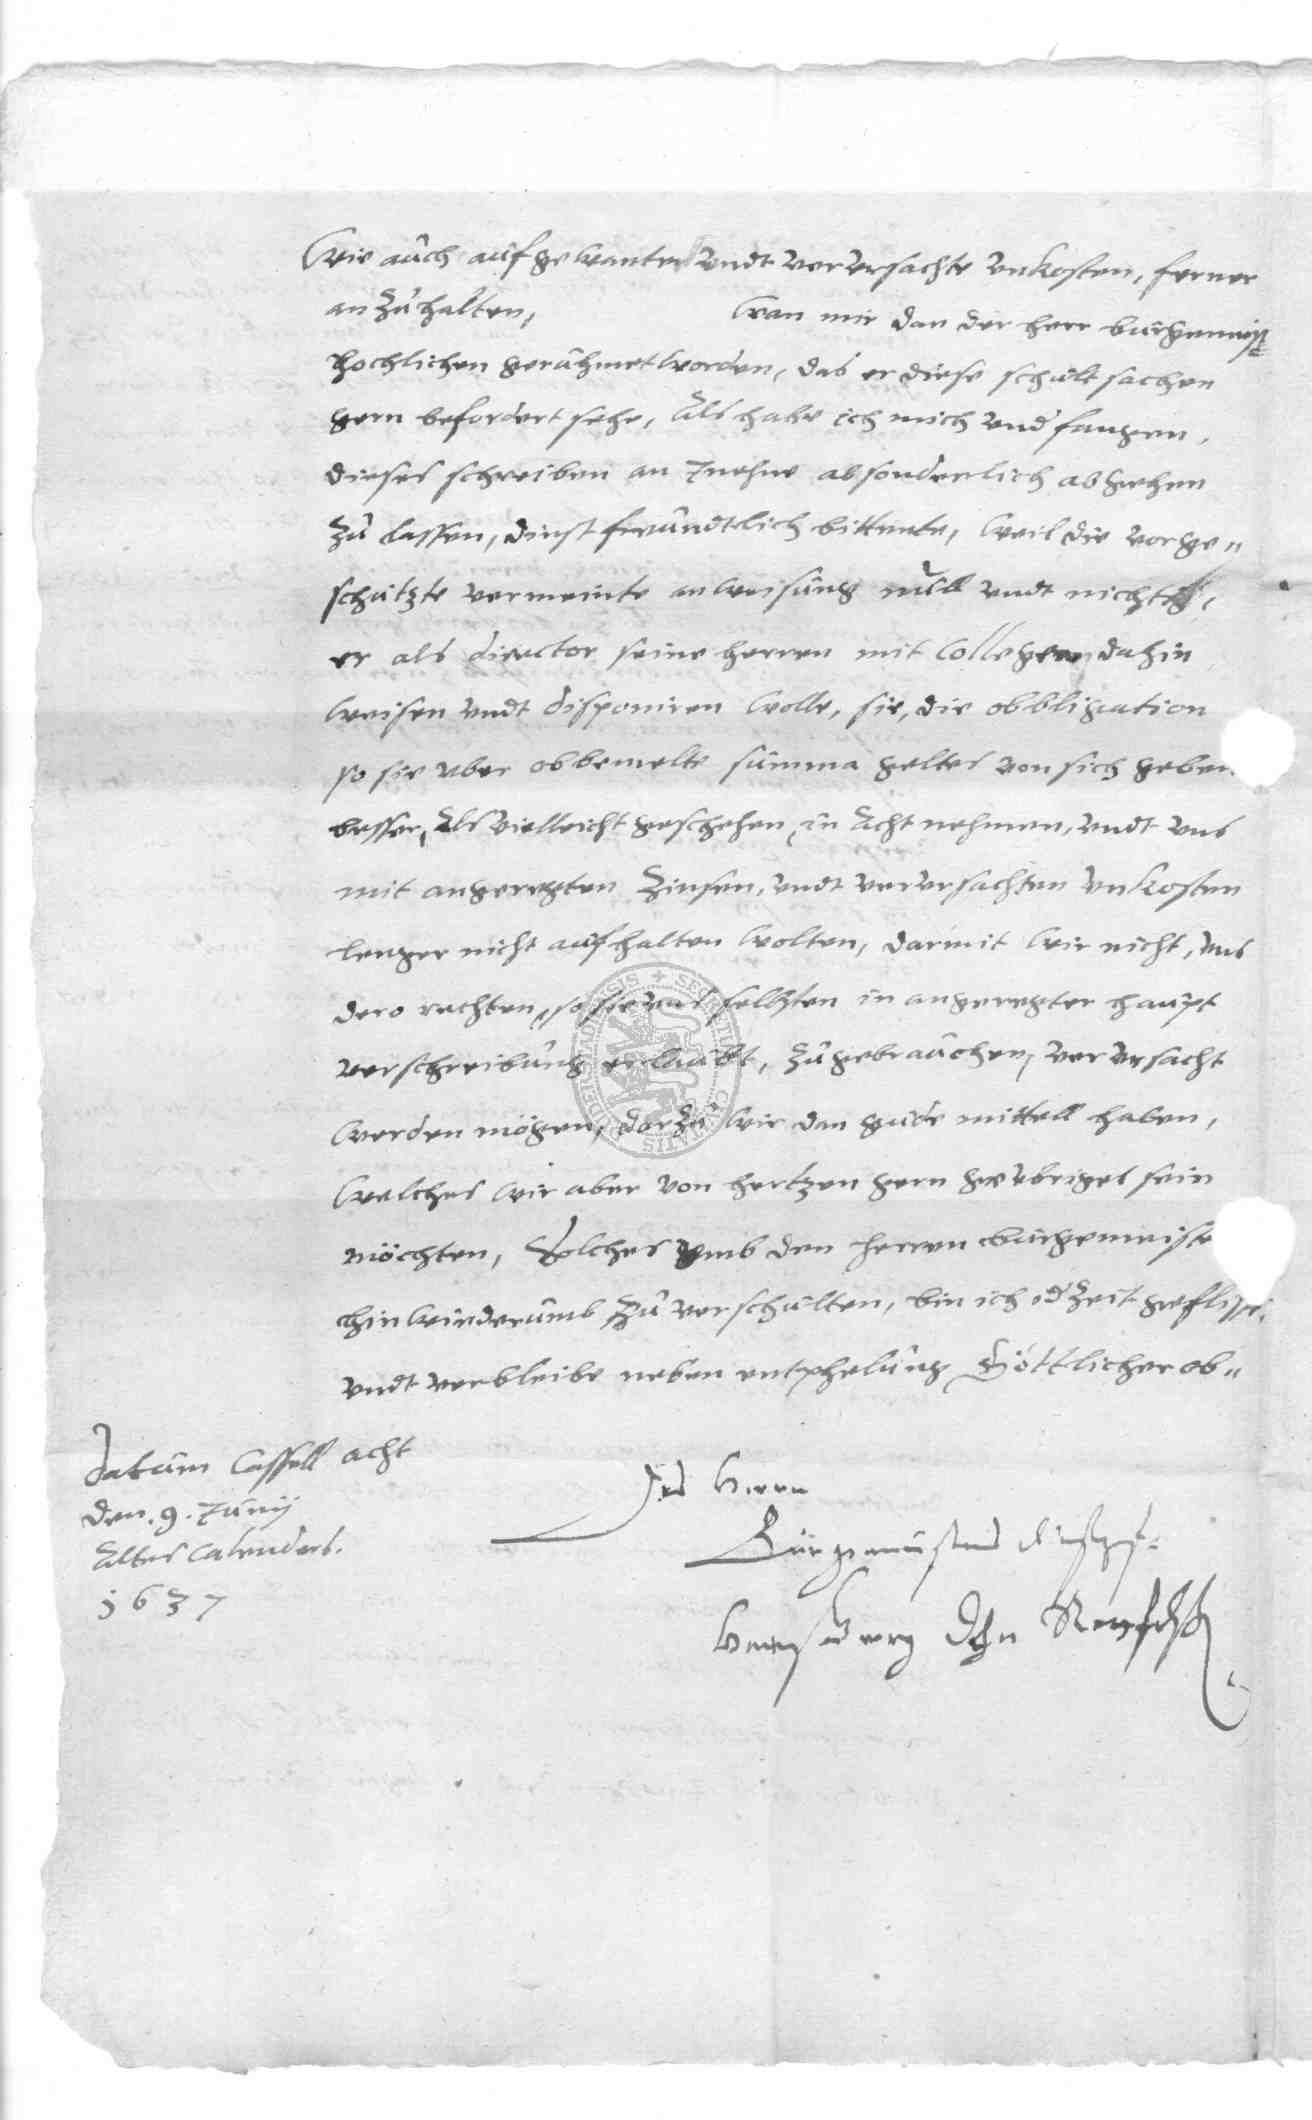 Wie auch aufgewanter undt verursachte unkosten, ferner
an zu halten, Wan mir dan der herr burgemeist
hochlichen gerühmet worden, das er diese schult sachen
gern befordert sehe, Als habe ich mich undfangen,
dieses schreiben an Inehne absonderlich abgehen
zu lassen, dinstfreundtlich bittente, weil die vorge„
schützte vermeinte anweisung null undt nichtig,
er als director seine herren mit Collegen dahin
weisen undt disponiren wolle, sie, die obbligation
so sie uber obbemelte summa geltes von sich geben
besser, als vielleicht geschehen, in Acht nehmen, undt uns
mit angeregten Zinsen, undt verursachten unkosten
lenger nicht aufhalten wolten, darmit wir nicht, uns
dero rechten, so sie uns selbsten in angeregter haupt
verschreibung erlaubt, zugebrauchen, verursacht
werden mögen, darzu wir dan gude mittell haben,
welches wir aber von hertzen gern geubriges sein
möchten, Solches umb den herren burgemeiste
hinwiederumb zu verschulten, bin ich iedzeit geflissen
undt verbleibe neben entphelung Göttlicher ob„
Datum Cassell acht
den. 9. Junij
Altes Calenders.
1637
Des Herrn
Burgemeisters
SECRETUM CIVITATIS